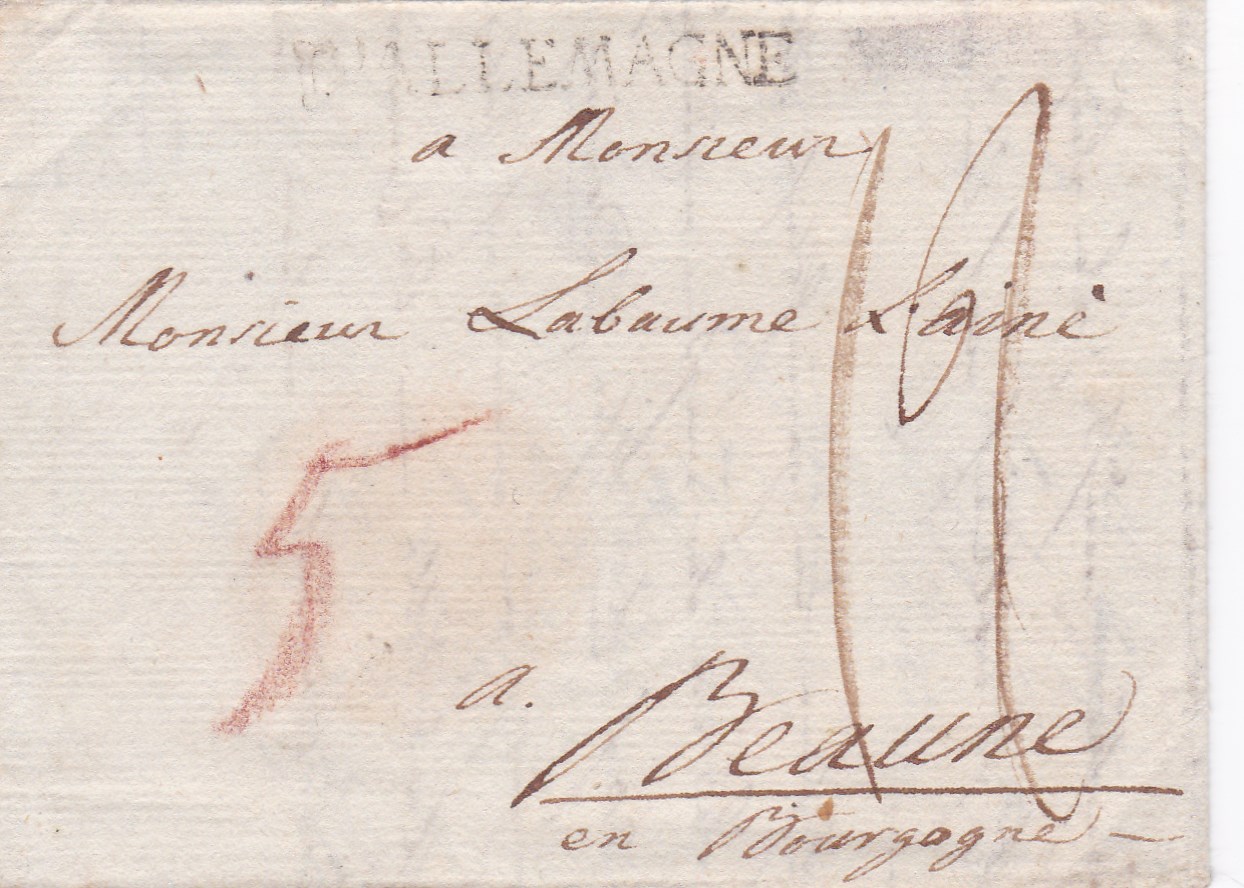 D'ALLEMAGNE
a Monsieur
Monsieur Labaume L'ainé
5
a.
Beaune
en Bourgogne